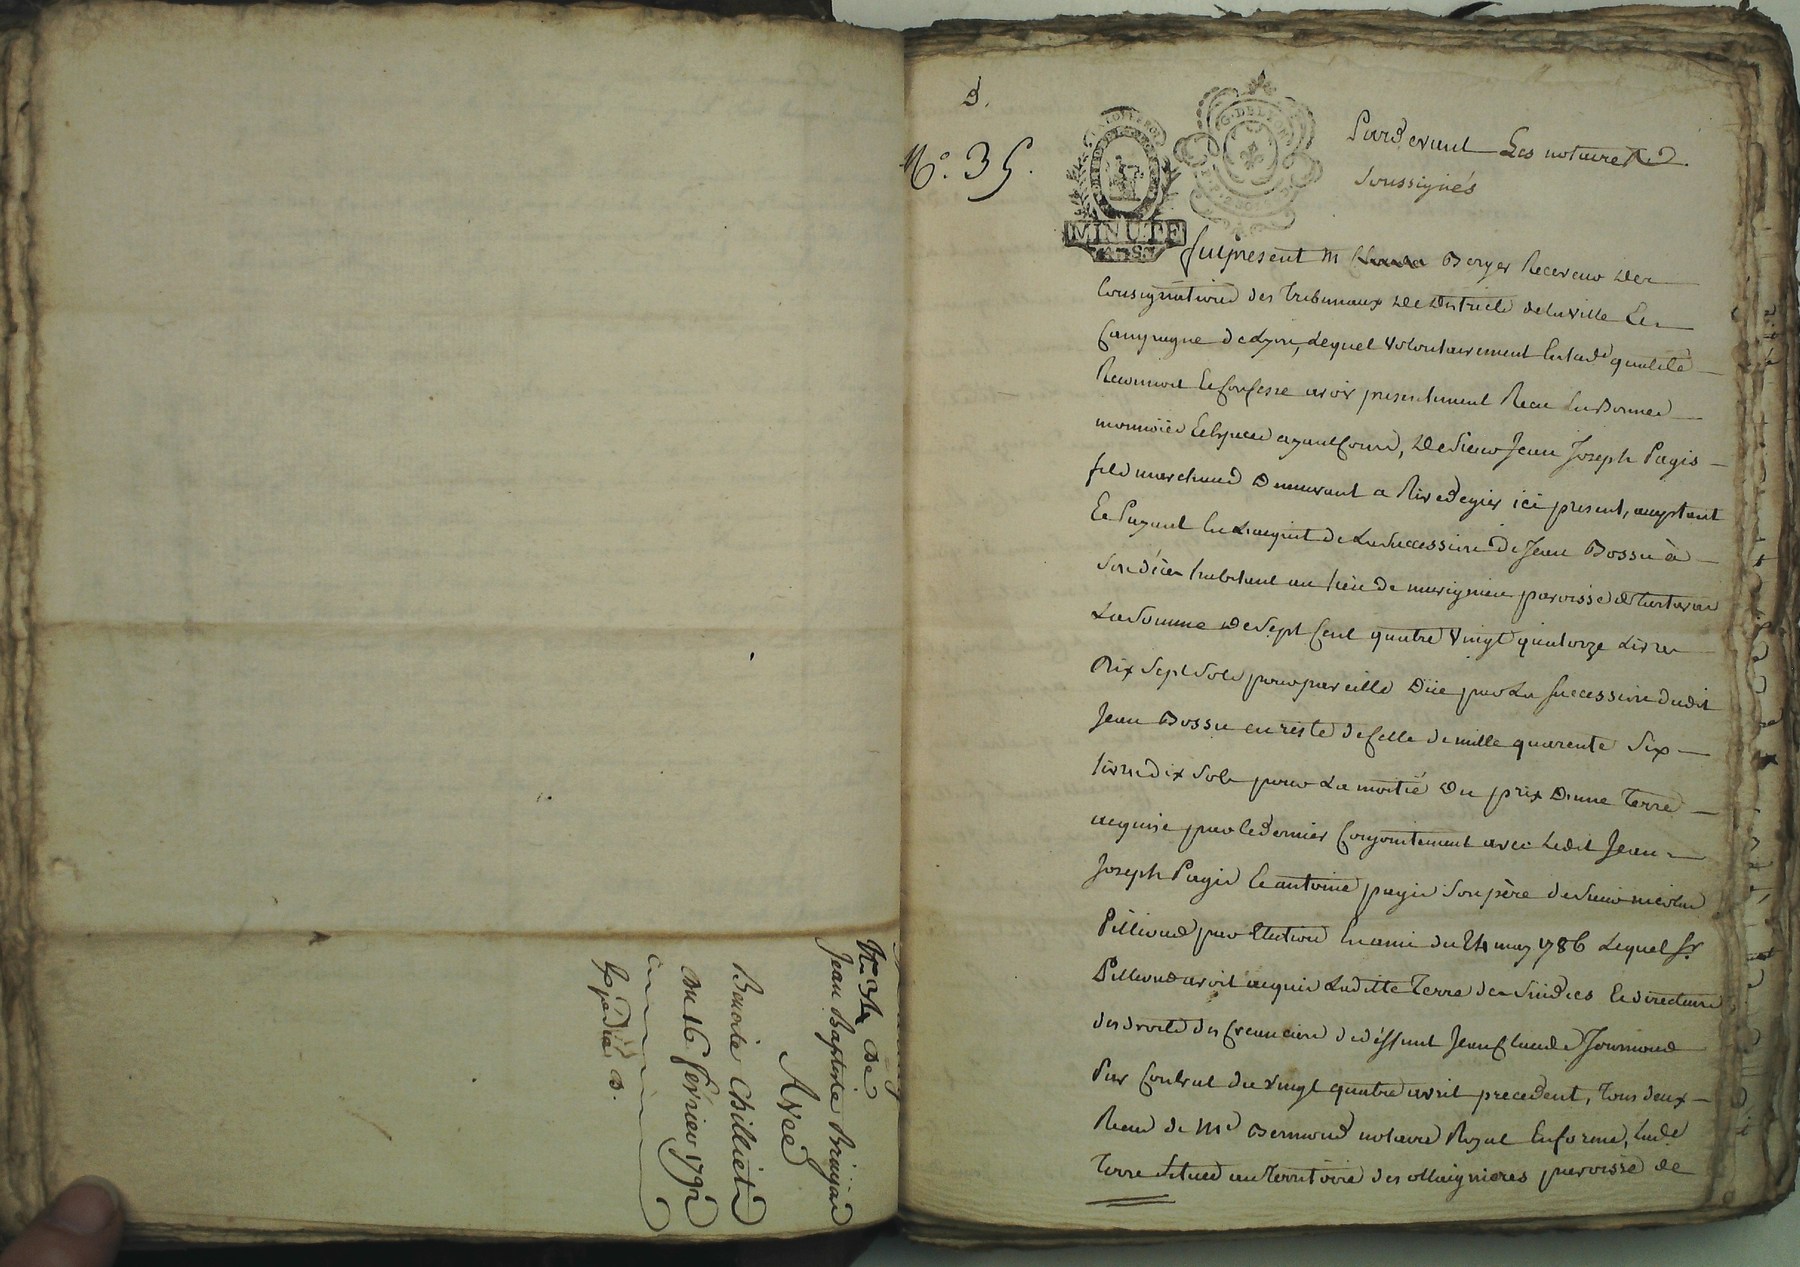 Jean Baptiste Bruyas
Avec
Benoite Chilliet
du 16 fevrier 1792
Expédié
D.
N°. 35.
G. DE LYON
MINUTE
Pardevant Les notaires
Soussignés
fut present M Berger Receveur des
Consignations des Tribunaux de District de la ville Et
Campagne de Lyon, Lequel Volontairement En lad. qualité
Reconnoit Et Confesse avoir presentement Recu En Bonnes
monnoies Et Especes ayant Cours, De Sieur Jean Joseph Pagis
fils marchand Demeurant a Rivedegier ici present, acceptant
Et Payant En L'acquit de La Succession De Jean Bossu à
Son décès habitant au lieu De parroisse de Tartaras
La Somme De Sept Cent quatre Vingt quatorze Livres
Dix Sept Sols pour pareille Düe par La Succession dudit
Jean Bossu en reste de Celle de mille quarente Six
livres dix Sols pour La moitié Du prix D'une Terre
acquise par le dernier Conjointement avec Ledit Jean
Joseph Pagis Et antoine pagis Son père de Sieur nicolas
Pilliond par Election En ami du 24 may 1786 Lequel Sr.
Pilliond avoit acquis Laditte Terre des Sindics Et directeurs
des droits des Creanciers de déffunt Jean Claude Journoud
Par Contrat du Vingt quatre avril precedent, Tous deux
Recus de Me Bernioud notaire Royal En forme, Lade
Terre Située au Territoire des parroisse de